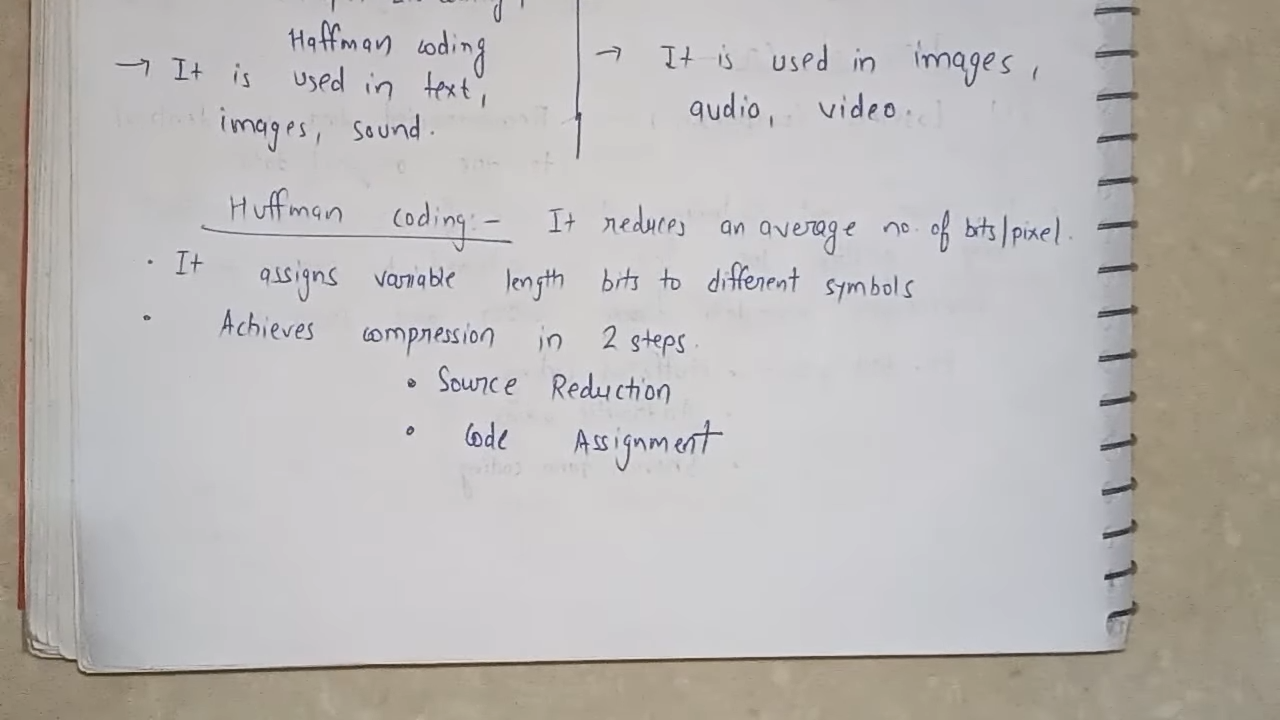 Haffman coding
→ It is used in text,
images, sound.
→ It is used in images,
audio, video.
Huffman coding:- It reduces an average no. of bits/pixel.
• It assigns variable length bits to different symbols
• Achieves compression in 2 steps.
• Source Reduction
• Code Assignment